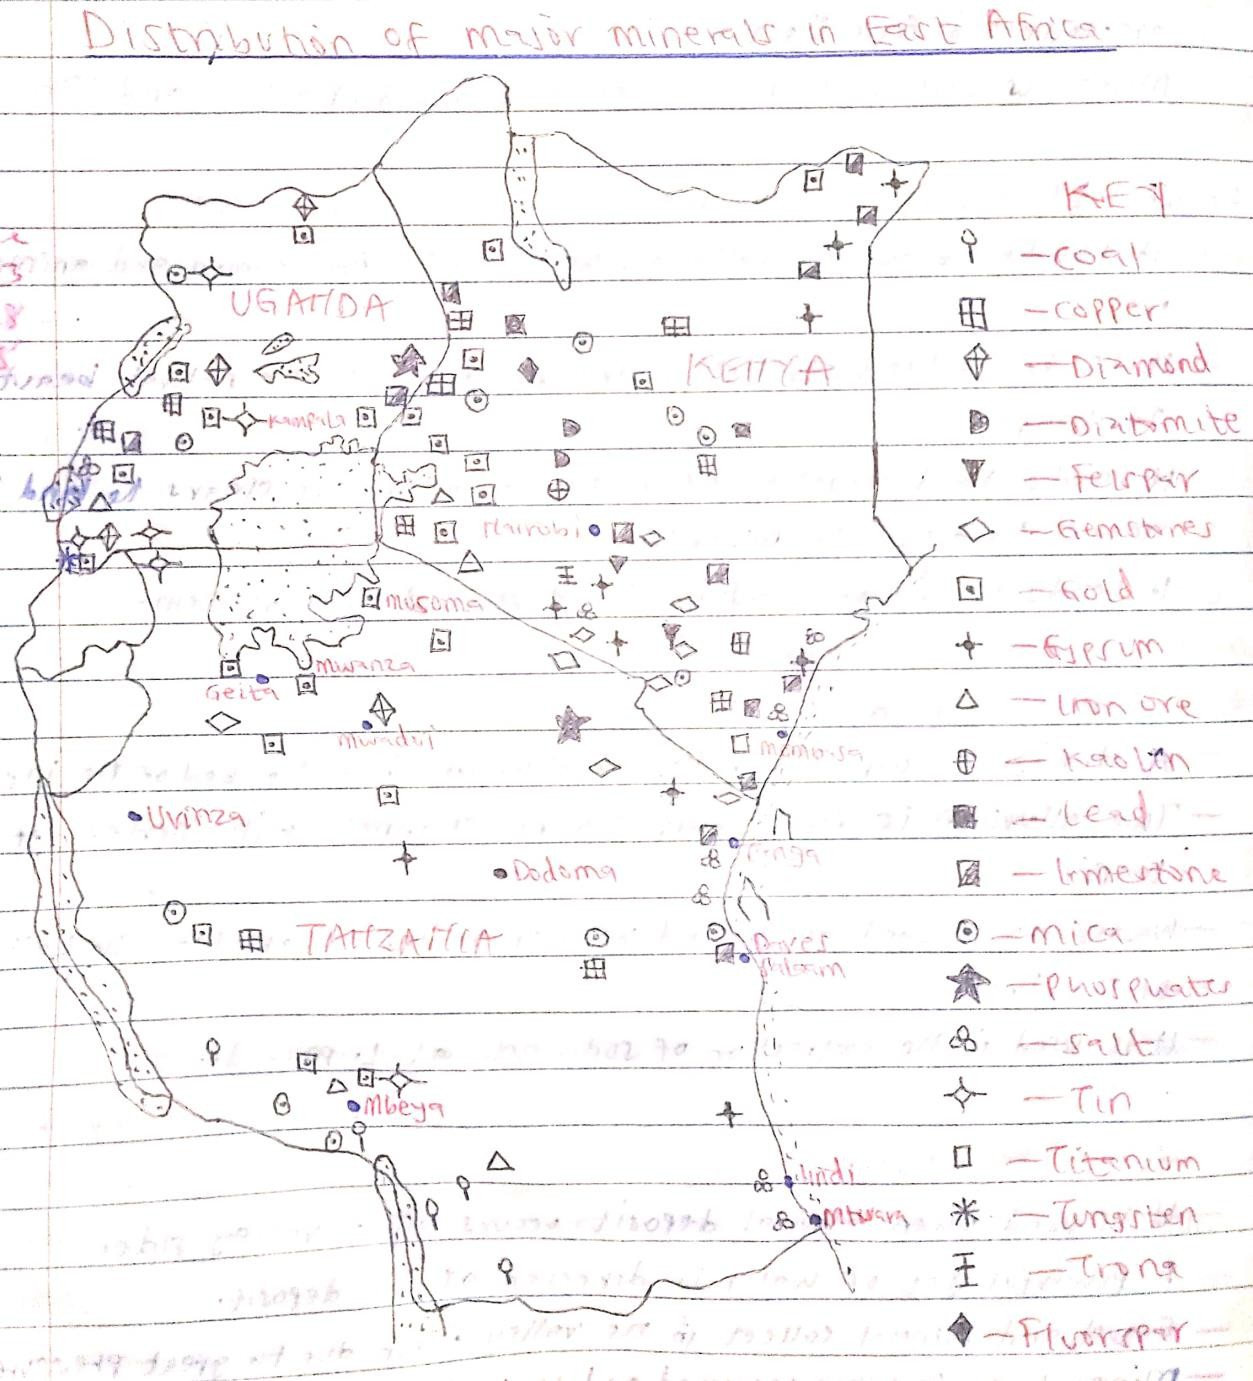 Distribution of major minerals in East Africa.
KEY
UGANDA
KENYA
Kampala
Nairobi
Musoma
Mwanza
Geita
Mwadui
Mombasa
Uvinza
Tanga
Dodoma
TANZANIA
Dares
Salaam
Mbeya
Lindi
Mtwara
— Coal
— Copper
— Diamond
— Diatomite
— Felspar
— Gemstones
— Gold
— Gypsum
— Iron ore
— Kaolin
— Lead
— limestone
— Mica
— Phosphates
— Salt
— Tin
— Titanium
— Tungsten
— Trona
— Fluorspar